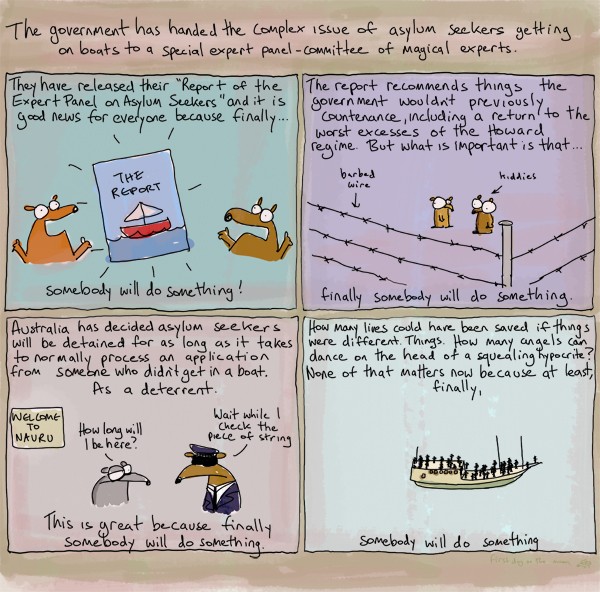 The government has handed the complex issue of asylum seekers getting
on boats to a special expert panel-committee of magical experts.
They have released their "Report of the
Expert Panel on Asylum Seekers" and it is
good news for everyone because finally...
THE
REPORT
somebody will do something!
The report recommends things the
government wouldn't previously
countenance, including a return to the
worst excesses of the Howard
regime. But what is important is that...
barbed
wire
kiddies
finally somebody will do something.
Australia has decided asylum seekers
will be detained for as long as it takes
to normally process an application
from someone who didn't get in a boat.
As a deterrent.
WELCOME
TO
NAURU
How long will
I be here?
Wait while I
check the
piece of string
This is great because finally
somebody will do something.
How many lives could have been saved if things
were different. Things. How many angels can
dance on the head of a squealing hypocrite?
None of that matters now because at least,
finally,
somebody will do something